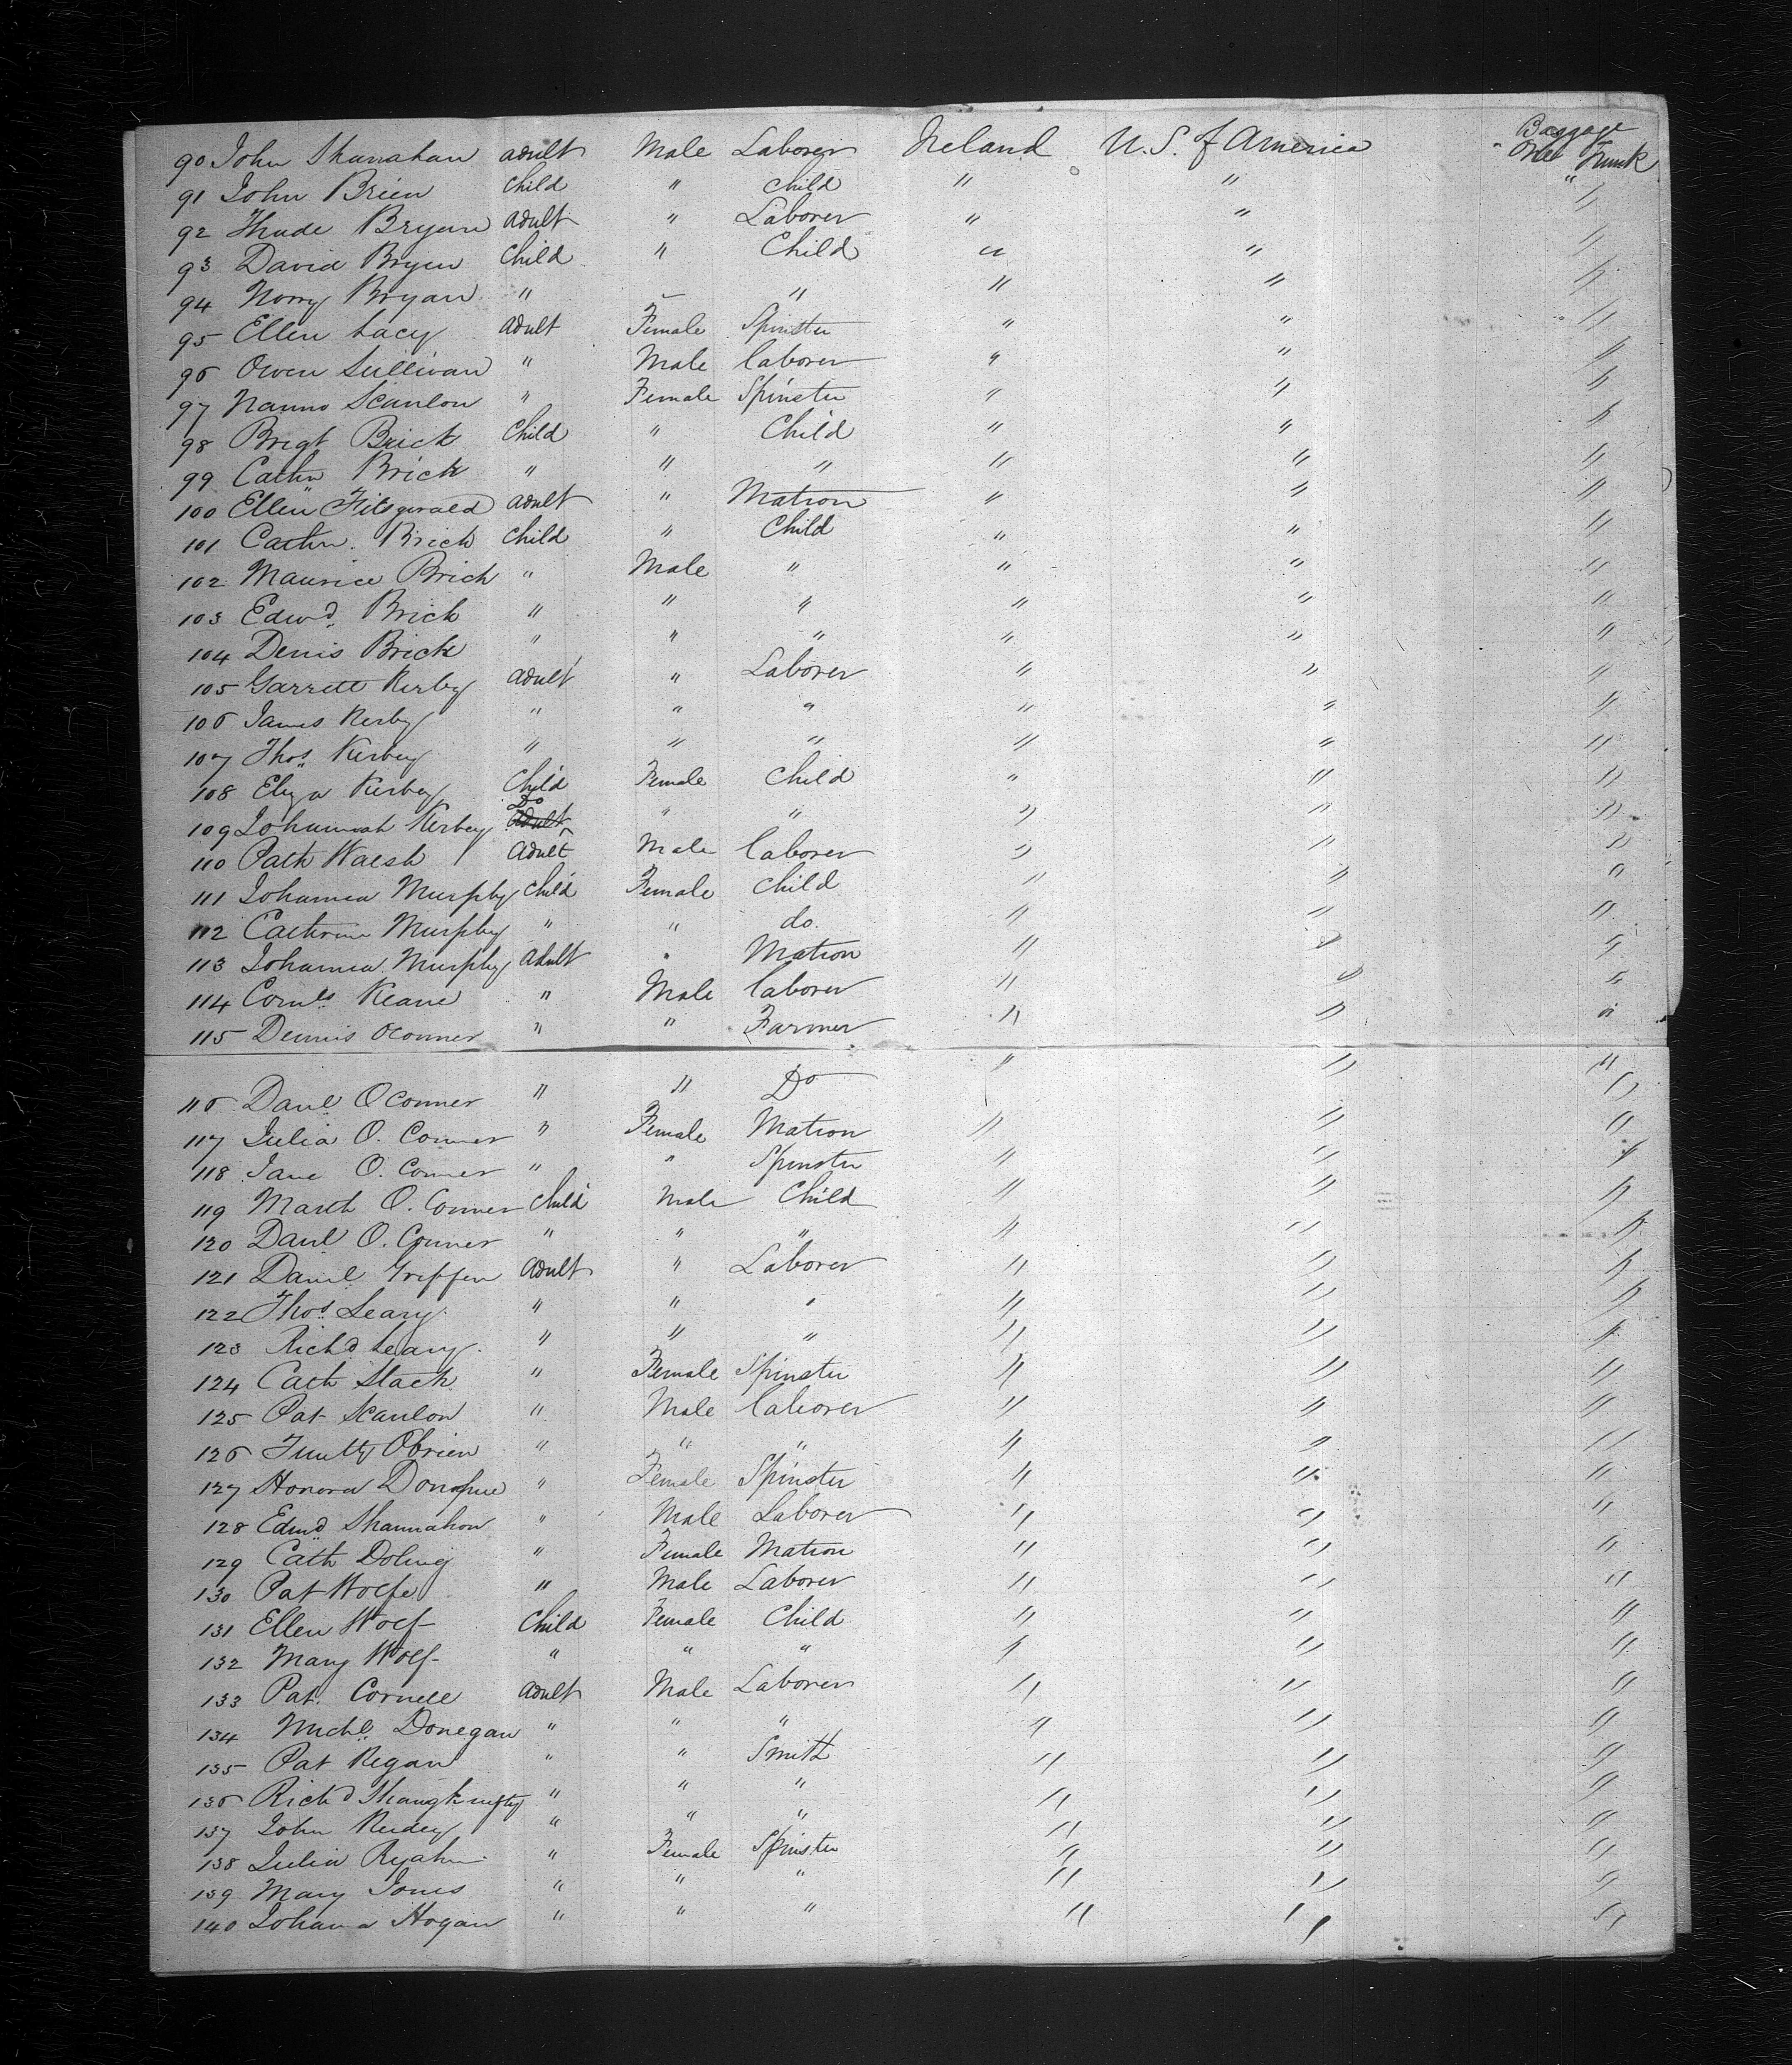 Baggage
90 John Shanahan adult Male Laborer Ireland U.S. of America One Trunk
91 John Brien Child " Child " " "
92 Thade Bryan adult " Laborer " " "
93 David Bryen Child " Child " " "
94 Norry Bryan " – " " " "
95 Ellen Lacy adult Female Spinster " " "
96 Owen Sullivan " Male Laborer " " "
97 Nanno Scanlon " Female Spinster " " "
98 Brigt Brick Child " Child " " "
99 Cathn Brick " " " " " "
100 Ellen Fitsgerald adult " Matron " " "
101 Cathn. Brick Child " Child " " "
102 Maurice Brick " Male " " " "
103 Edwd. Brick " " " " " "
104 Denis Brick " " " " " "
105 Garrett Kerby adult " Laborer " " "
106 James Kerby " " " " " "
107 Thos. Kerbey " " " " " "
108 Eliza Kerbey Child Female Child " " "
Do
109 Johannah Kerbey adult " " " " "
110 Patk Walsh adult Male Laborer " " "
111 Johanna Murphy Child Female Child " " "
112 Cathrine Murphy " " do. " " "
113 Johanna Murphy adult " Matron " " "
114 Cornls Keane " Male Laborer " " "
115 Dennis OConner " " Farmer " " "
116 Danl. OConner " " Do " " "
117 Julia O. Conner " Female Matron " " "
118 Jane O. Conner " " Spinster " " "
119 Marth O. Conner Child Male Child " " "
120 Danl O. Conner " " " " " "
121 Daniel Griffen adult " Laborer " " "
122 Thos. Leary " " " " " "
123 Richd Leary. " " " " " "
124 Cath Stack " Female Spinster " " "
125 Pat Scanlon " Male Laborer " " "
126 Timthy Obrien " " " " " "
127 Honora Donahue " Female Spinster " " "
128 Edmd Shannahon " Male Laborer " " "
129 Cath Doling " Female Matron " " "
130 Pat Wolfe " Male Laborer " " "
131 Ellen Wolf Child Female Child " " "
132 Mary Wolf " " " " " "
133 Pat. Cornell adult Male Laborer " " "
134 Michl. Donegan " " " " " "
135 Pat Regan " " Smith " " "
136 Richd " " " " " "
137 John " " " " " "
138 Julia " Female Spinster " " "
139 Mary Jones " " " " " "
140 Johana Hogan " " " " " "